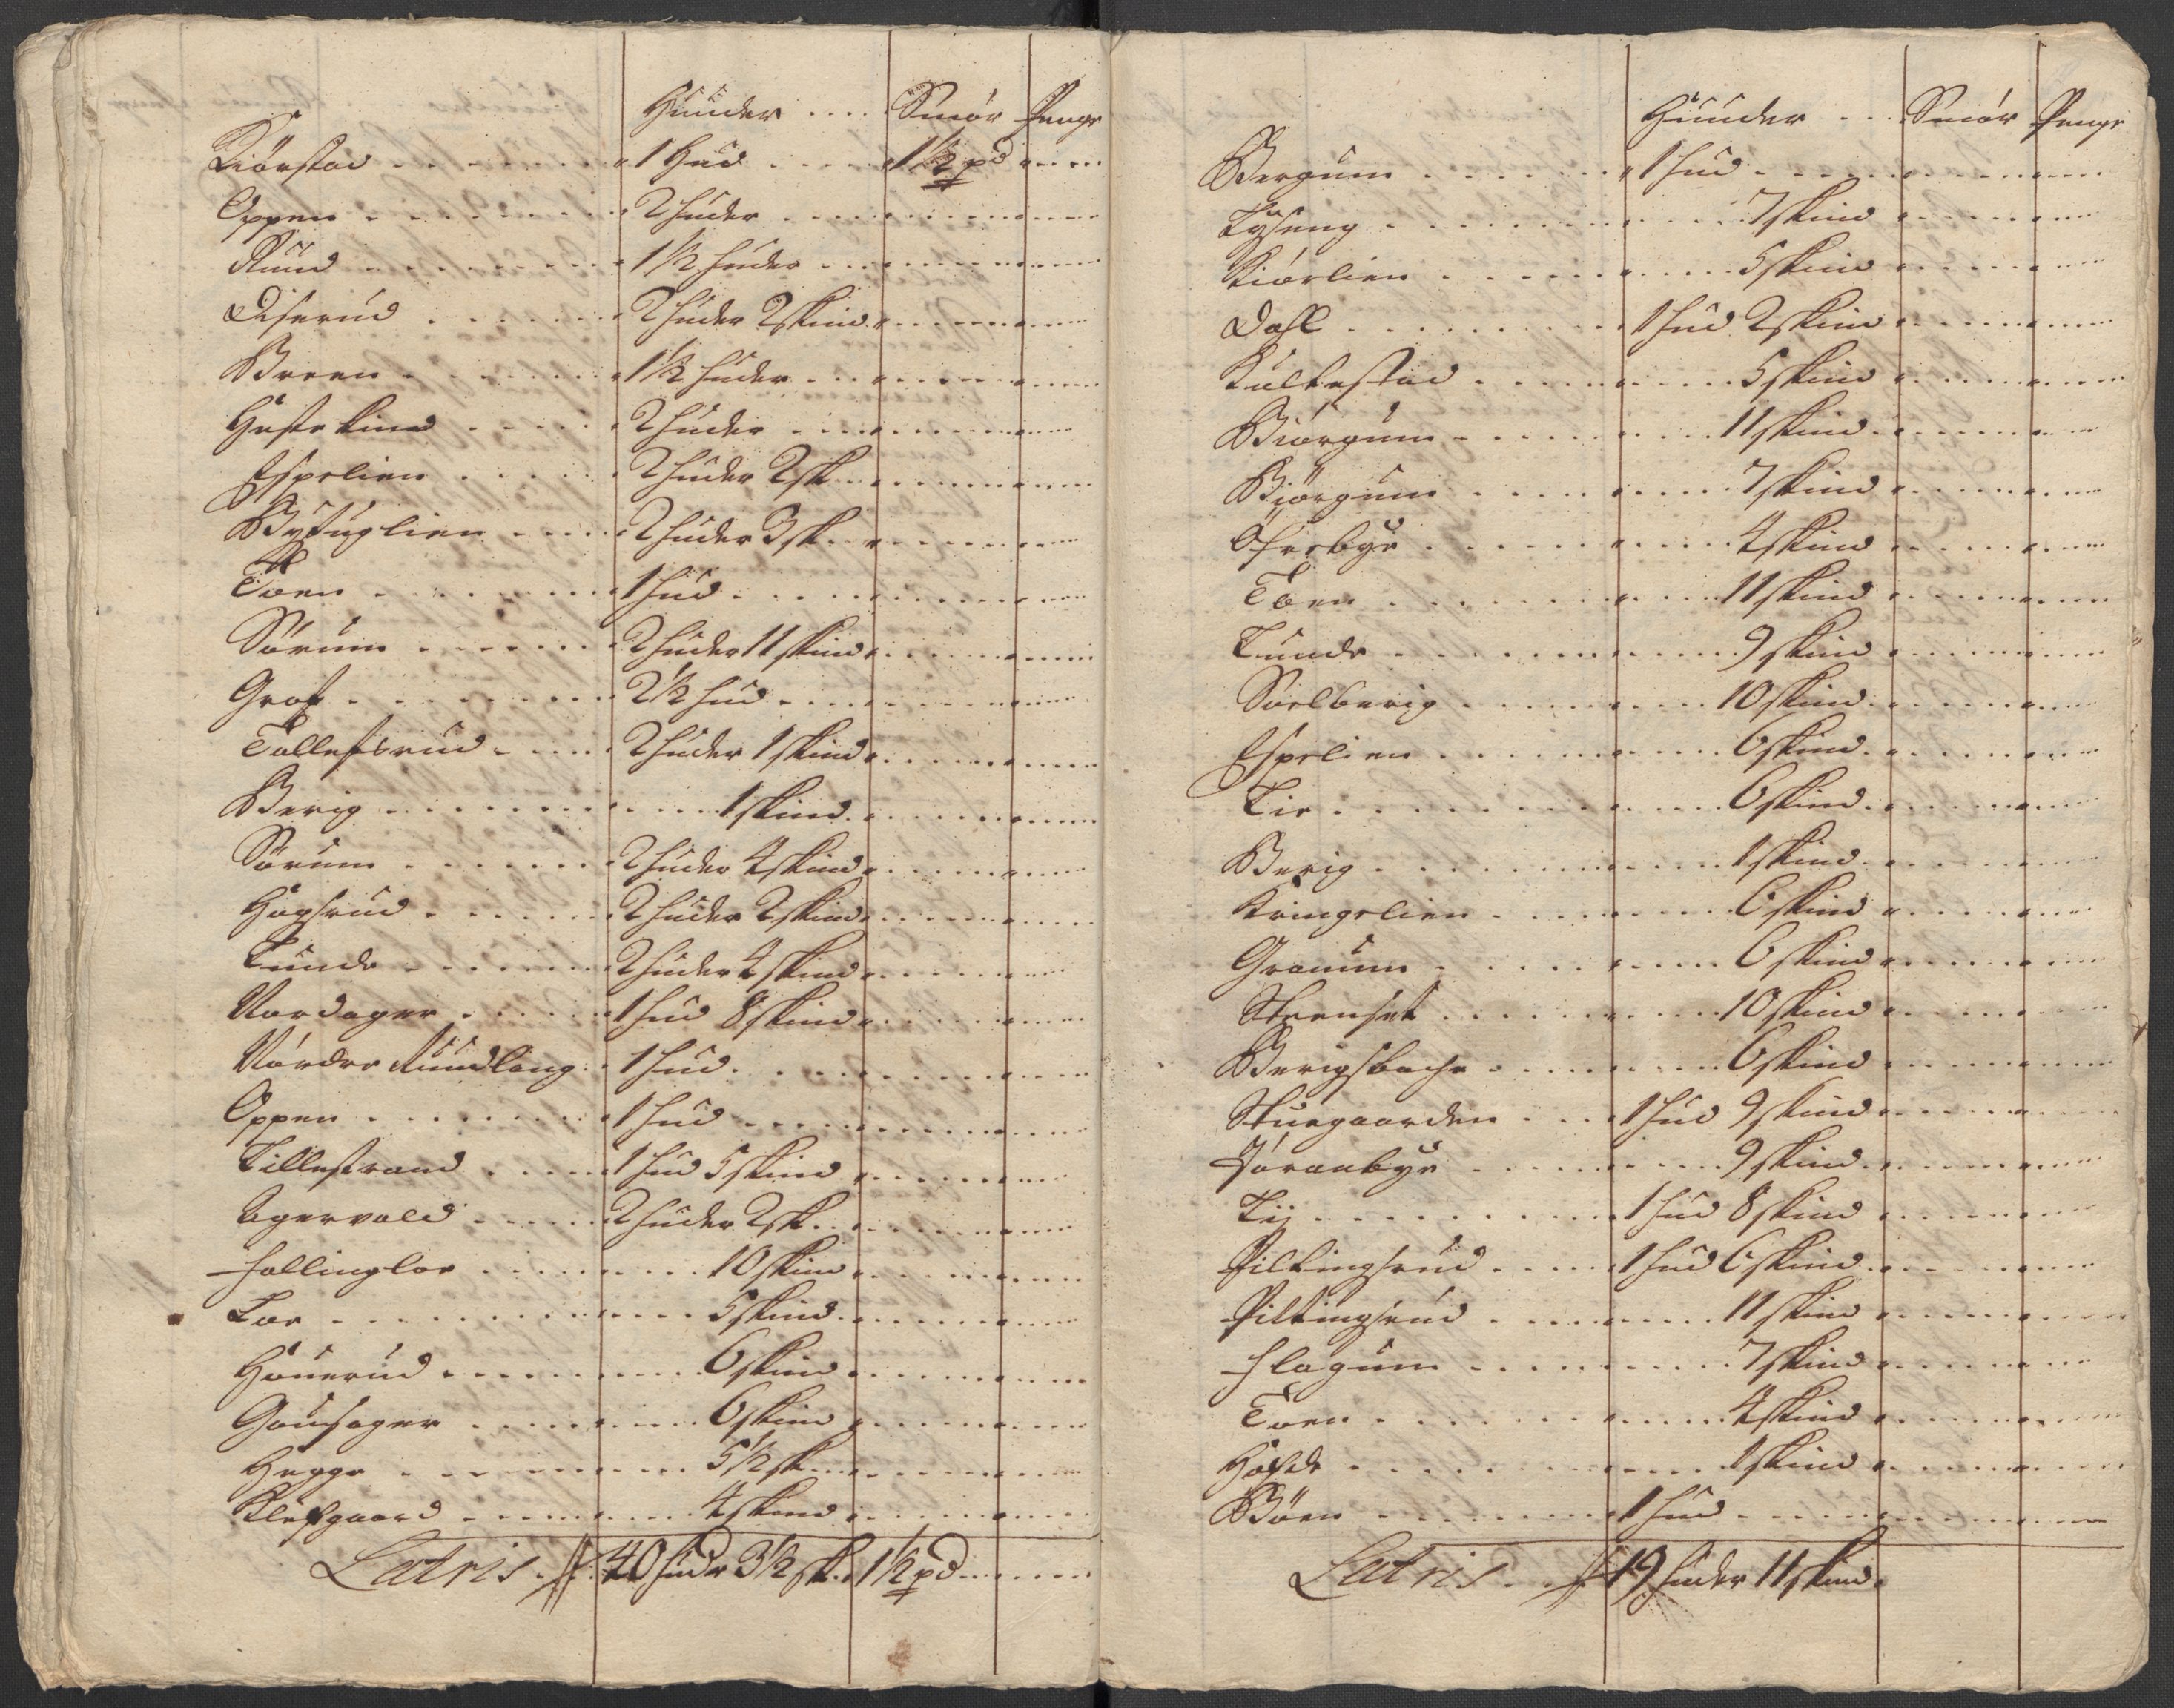 Huuder .... Smör Penge
Kiörstad . . . . . 1 Hud . . . 1½ pd . . .
Oppen . . . . . 2 huder . . . . .
Ruud . . . . . 1½ huder . . . . .
Diserud . . . . . 2 huder 2 skind . . . . .
Breen . . . . . 1½ huder . . . . .
Hestekind . . . . . 2 huder . . . . .
Espelien . . . . . 2 huder 2 sk . . . . .
Byfuglien . . . . . 2 huder 3 sk . . . . .
Toen . . . . . 1 hud . . . . .
Sörum . . . . . 2 huder 11 skind . . . . .
Graf . . . . . 2½ hud . . . . .
Tollefsrud . . . . . 2 huder 1 skind . . . . .
Berig . . . . . 1 skind . . . . .
Sörum . . . . . 2 huder 4 skind . . . . .
Högsrud . . . . . 2 huder 2 skind . . . . .
Lunde . . . . . 2 huder 4 skind . . . . .
Nordager . . . . . 1 hud 8 skind . . . . .
Nördre Ruudlang . . 1 hud . . . . .
Oppen . . . . . 1 hud . . . . .
Lillestrand . . . . . 1 hud 5 skind . . . . .
Agervold . . . . . 2 huder 2 sk . . . . .
Hallinglar . . . . . 10 skind . . . . .
Lar . . . . . 5 skind . . . . .
Höuerud . . . . . 6 skind . . . . .
Gousager . . . . . 6 skind . . . . .
Hegge . . . . . 5½ sk . . . . .
Klefgaard . . . . . 4 skind . . . . .
Latris . // . 40 hude 3½ sk . 1½ pd . . . . .
Huuder . . . Smör Penge
Bergum . . . . . 1 hud . . . . .
Lyseng . . . . . 7 skind . . . . .
Kiörlien . . . . . 5 skind . . . . .
Dahl . . . . . 1 hud 2 skind . . . . .
Kulkestad . . . . . 5 skind . . . . .
Biörgum . . . . . 11 skind . . . . .
Biörgum . . . . . 7 skind . . . . .
Öfrebye . . . . . 4 skind . . . . .
Toen . . . . . 11 skind . . . . .
Lunde . . . . . 9 skind . . . . .
Soelberig . . . . . 10 skind . . . . .
Espelien . . . . . 6 skind . . . . .
Lie . . . . . 6 skind . . . . .
Berig . . . . . 1 skind . . . . .
Kringelien . . . . . 6 skind . . . . .
Granum . . . . . 6 skind . . . . .
Steenset . . . . . 10 skind . . . . .
Berigsbache . . . . . 6 skind . . . . .
Stuegaarden . . . 1 hud 9 skind . . . . .
Jöranbye . . . . . 9 skind . . . . .
Lij . . . . . 1 hud 8 skind . . . . .
Piltingsrud . . . . . 1 hud 6 skind . . . . .
Piltingsrud . . . . . 11 skind . . . . .
Hagum . . . . . 7 skind . . . . .
Toen . . . . . 4 skind . . . . .
Hofde . . . . . 1 skind . . . . .
Böen . . . . . 1 hud . . . . .
Latris . . // 19 huder 11 skind .